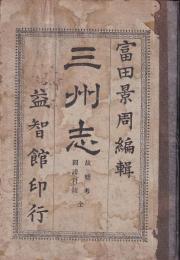 富田景周編輯
三州志
故墟考
図譜村籍 全
益智館印行